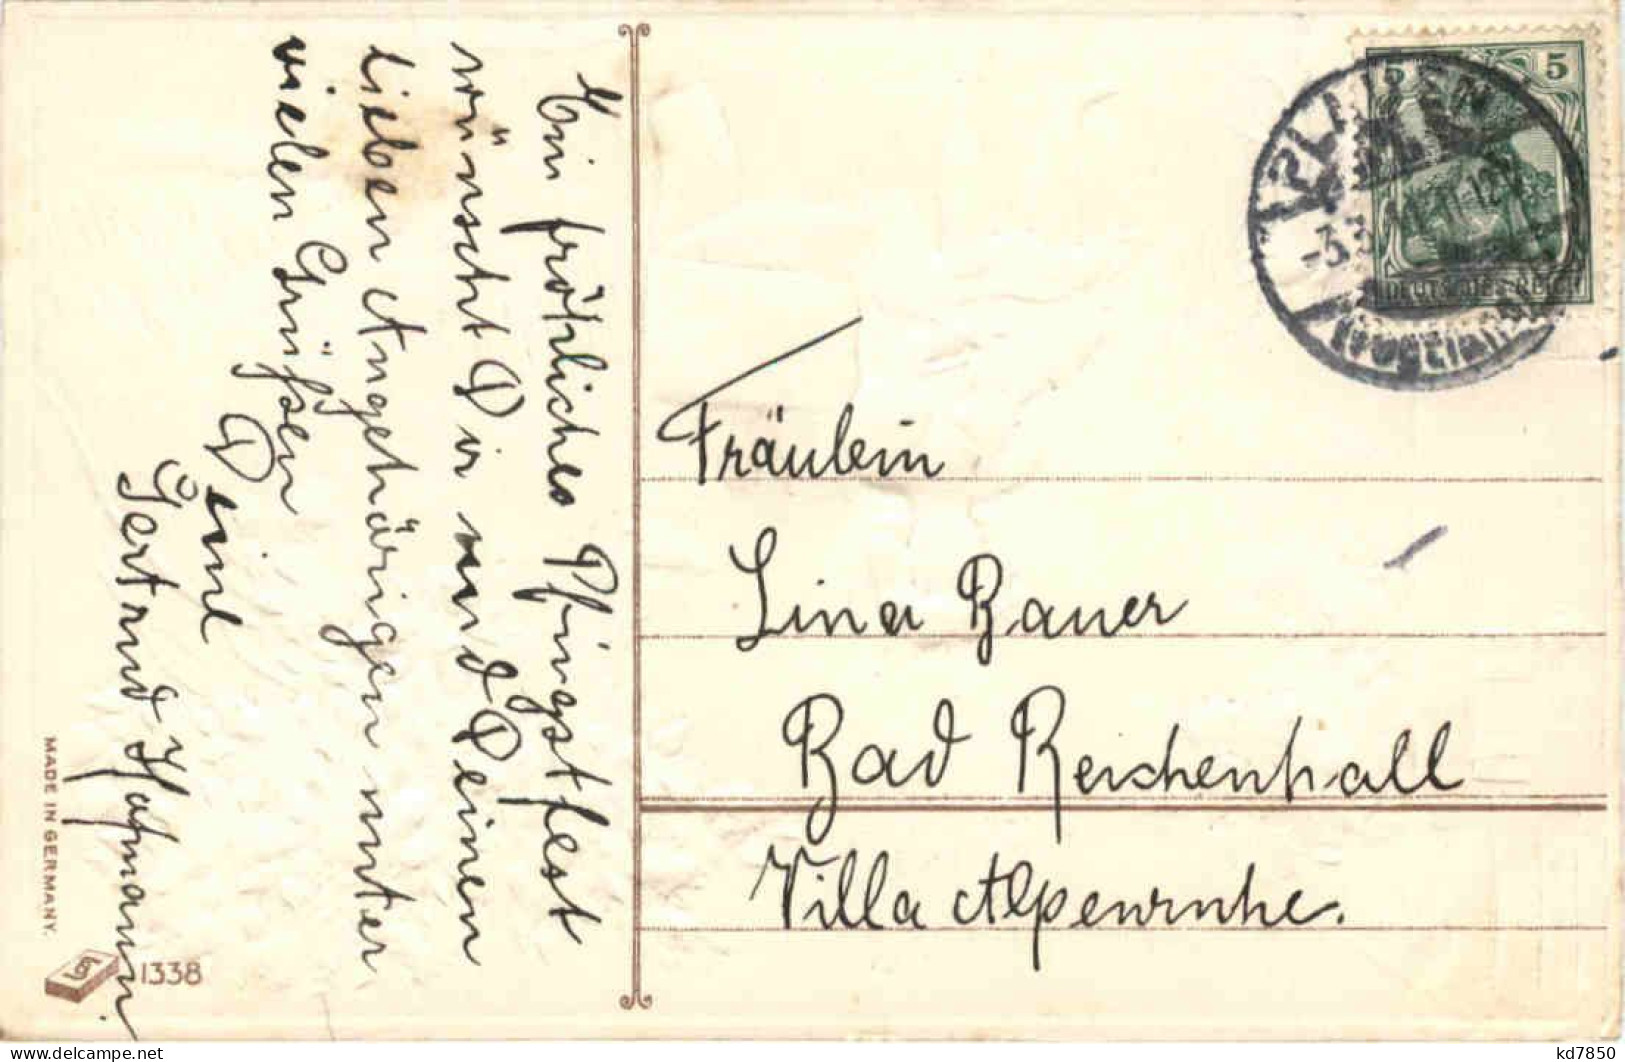 Ein fröhliches Pfingstfest
wünscht Dir und Deinen
lieben Angehörigen unter
vielen Grüßen
Deine
Gertrud Hofmann.
Fräulein
Lina Bauer
Bad Reichenhall
Villa Alpenruhe.
PLAUEN
-3.
11-12V
(VOGTLAND)
5
5
DEUTSCHES REICH
MADE IN GERMANY.
1338
kd7850